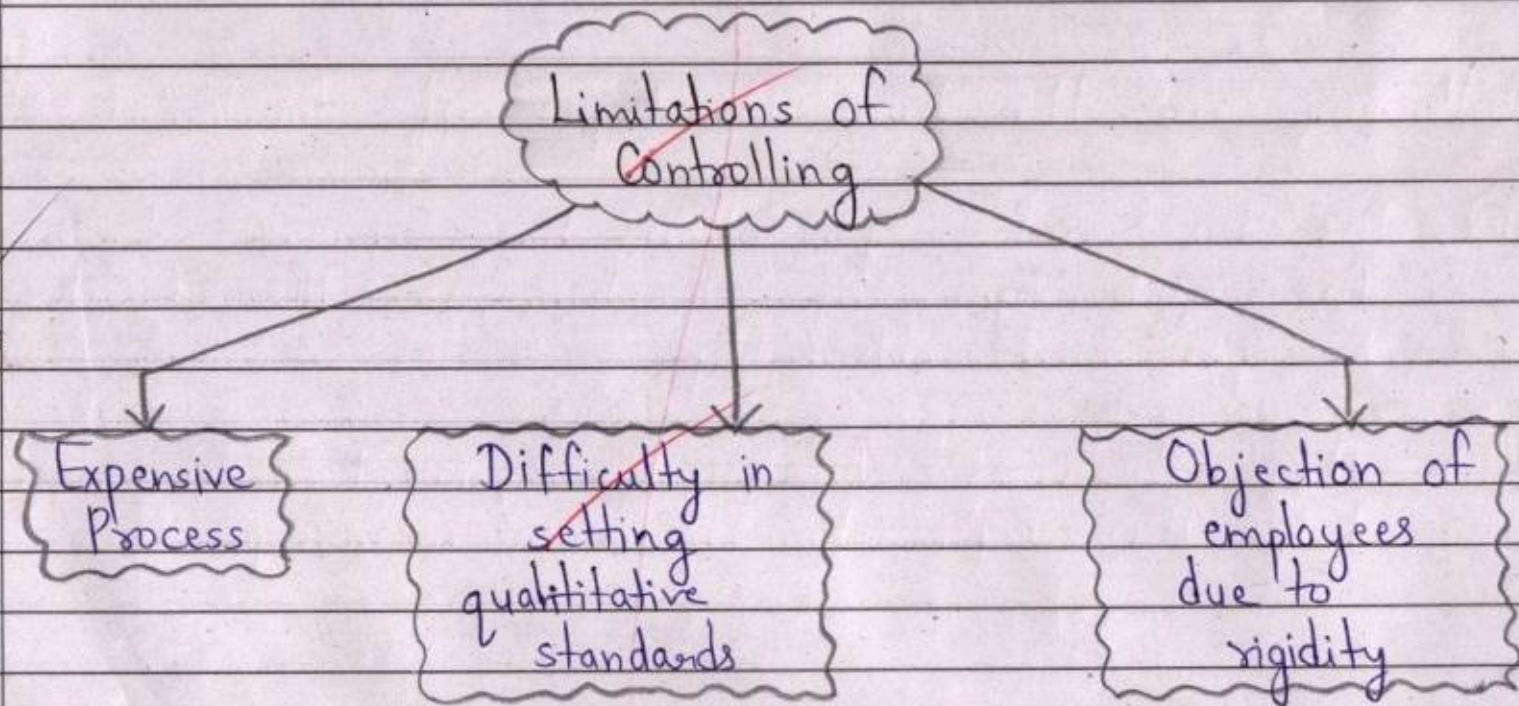 Limitations of
Controlling
Expensive
Process
Difficulty in
setting
qualititative
standards
Objection of
employees
due to
rigidity